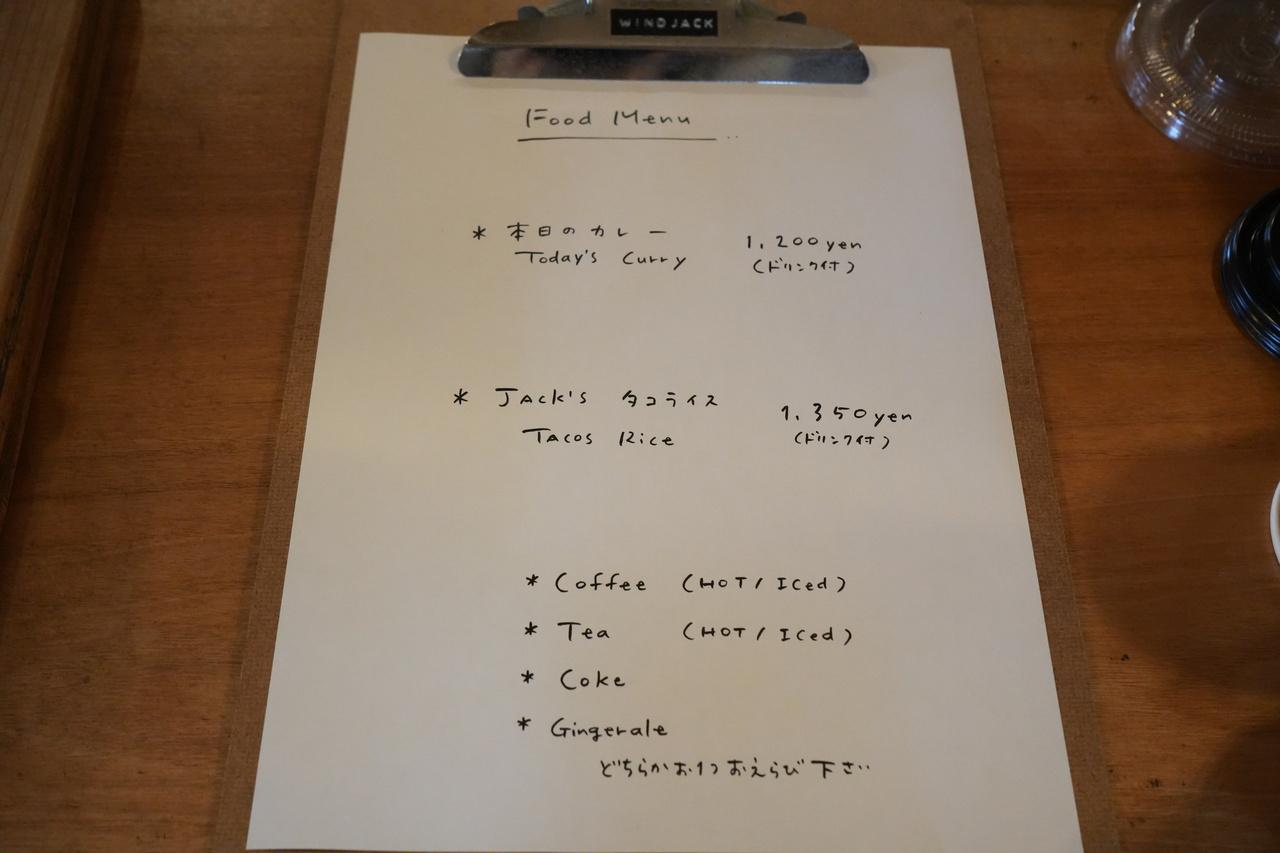 WINDJACK
Food Menu
* 本日のカレー 1,200yen
Today's Curry (ドリンク付)
* Jack's タコライス 1,350yen
Tacos Rice (ドリンク付)
* Coffee (HOT / Iced)
* Tea (HOT / Iced)
* Coke
* Gingerale
どちらかお1つおえらび下さい